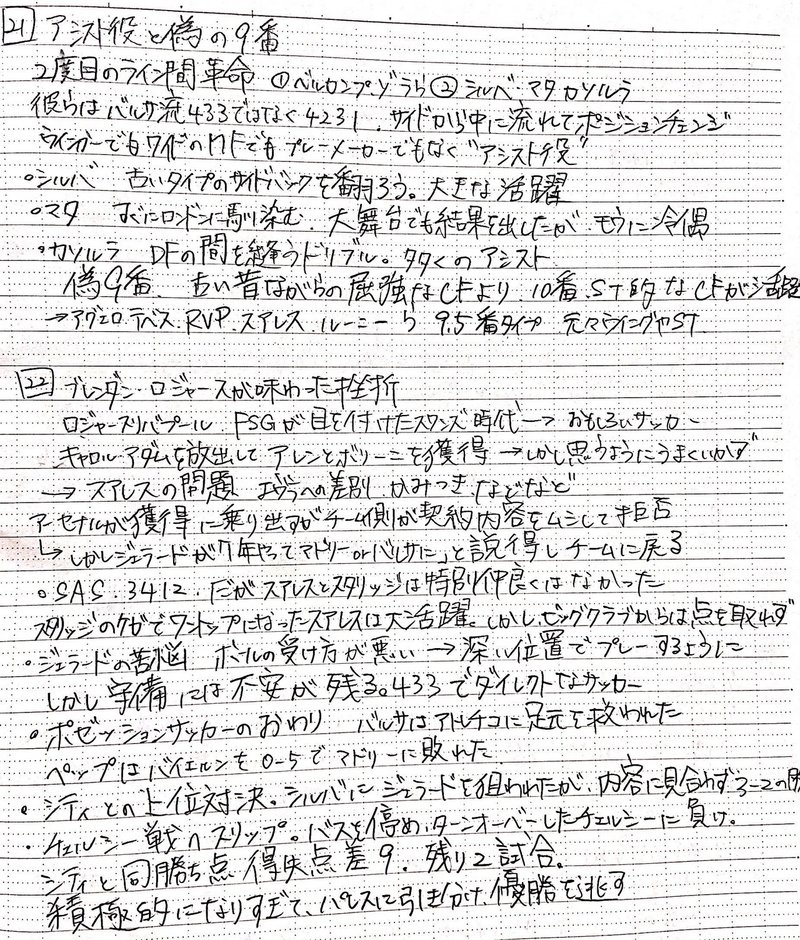 21 アシスト役と偽の9番
2度目のライン間革命 ①ベルカンプ、ゾラら ②シルバ・マタ カソルラ
彼らはバルサ流433ではなく4231. サイドから中に流れてポジションチェンジ
ウインガーでもワイドのMFでもプレーメーカーでもなく"アシスト役"
○シルバ 古いタイプのサイドバックを翻ろう。大きな活躍
○マタ すぐにロンドンに馴染む. 大舞台でも結果を出したが モウに冷偶
・カソルラ DFの間を縫うドリブル。多くのアシスト
偽9番. 古い昔ながらの屈強なCFより. 10番. ST的なCFが活躍
→アグエロ.テベス.RVP.スアレス.ルーニーら 9.5番タイプ 元々ウイングやST
22 ブレンダン・ロジャースが味わった挫折
ロジャースリバプール. FSGが目を付けたスワンズ時代→おもしろいサッカー
キャロル.アダムを放出して アレンとボリーニを獲得→しかし思うようにうまくいかず
→スアレスの問題 エヴラへの差別. かみつき などなど
アーセナルが獲得に乗り出すがチーム側が契約内容をムシして拒否
↳しかしジェラードが「1年やってマドリーorバルサに」と説得しチームに戻る
○SAS. 3412. だがスアレスとスタリッジは特別仲良くはなかった
スタリッジのケガでワントップになったスアレスは大活躍。しかし、ビッグクラブからは点を取れず
・ジェラードの苦悩 ボールの受け方が悪い→深い位置でプレーするように
しかし守備には不安が残る。433でダイレクトなサッカー
○ポゼッションサッカーのおわり バルサはアトレチコに足元を救われた
ペップはバイエルンを0-5でマドリーに敗れた
・シティとの上位対決。シルバにジェラードを狙われたが、内容に見合わず3-2の勝
・チェルシー戦のスリップ。バスを停め、ターンオーバーしたチェルシーに負け。
シティと同勝ち点 得失点差9. 残り2試合。
積極的になりすぎて、パレスに引き分け、優勝を逃す